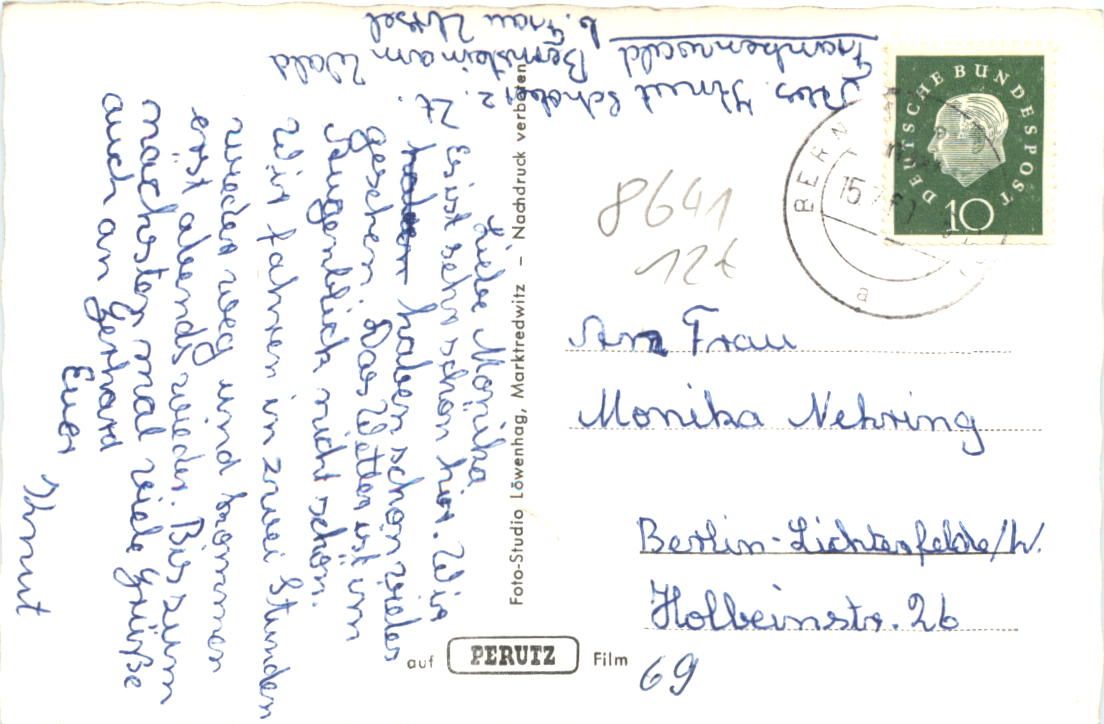 Abs. Ihnut Scholer z. Zt.
Bernstein am Wald
Frankenwald
b. Frau Ursel
Liebe Monika
Es ist sehr schön hier. Wir
haben haben schon vieles
gesehen. Das Wetter ist im
Augenblick nicht schön.
Wir fahren in zwei Stunden
wieder weg und kommen
erst abends wieder. Bis zum
nächsten mal viele Grüße
auch an Gerhard
Euer
Ihnut
Foto-Studio Löwenhag, Marktredwitz – Nachdruck verboten
auf PERUTZ Film
DEUTSCHE BUNDESPOST
10
BERN
15.7.6
a
8641
12t
An Frau
Monika Nehring
Berlin-Lichterfelde/W.
Holbeinstr. 26
69